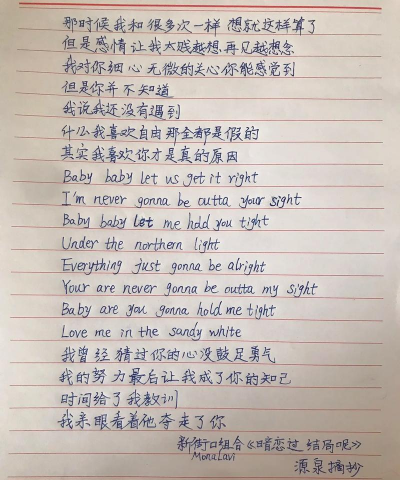 那时候我和很多次一样 想就这样算了
但是感情让我太残越想再见越想念
我对你细心无微的关心你能感觉到
但是你并不知道
我说我还没有遇到
什么我喜欢自由那全都是假的
其实我喜欢你才是真的原因
Baby baby let us get it right
I'm never gonna be outta your sight
Baby baby let me hold you tight
Under the northern light
Everything just gonna be alright
Your are never gonna be outta my sight
Baby are you gonna hold me tight
Love me in the sandy white
我曾经猜过你的心没鼓足勇气
我的努力最后让我成了你的知己
时间给了我教训
我亲眼看着他夺走了你
新街口组合《暗恋过 结局呢》
MonaLavi
源泉摘抄